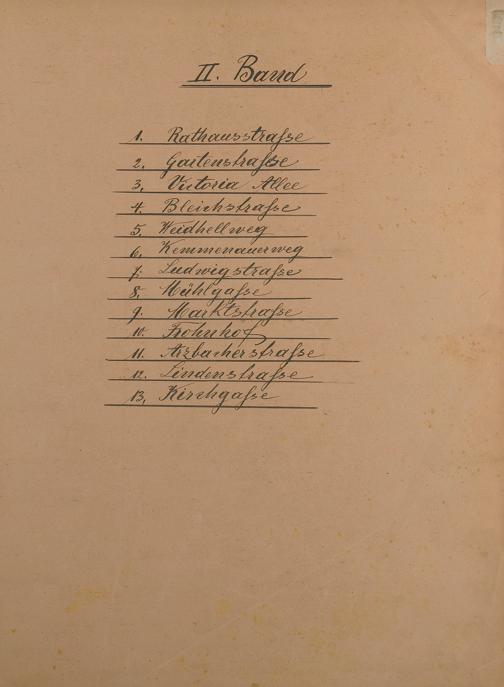 II. Band
1. Rathausstraſse
2. Gartenstraſse
3, Victoria Allee
4. Bleichstraſse
5. Weidhellweg
6, Kemmenauerweg
7. Ludwigstraſse
8, Mühlgaſse
9. Marktstraſse
10. Frohnhof
11. Arzbacherstraſse
12. Lindenstraſse
13, Kirchgaſse